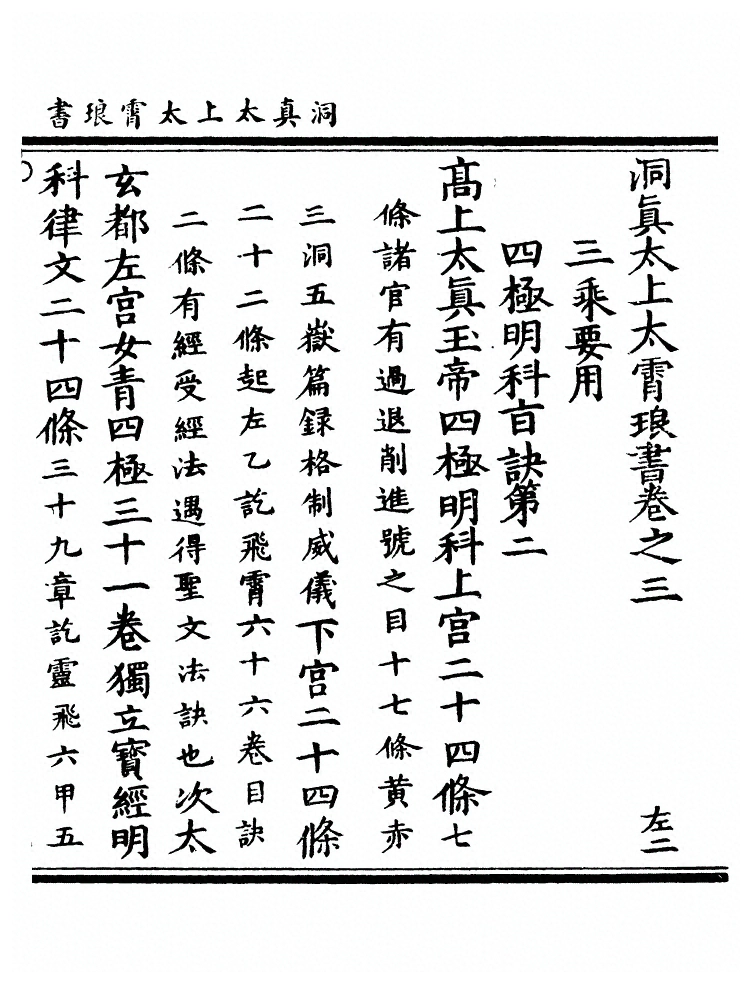 洞真太上太霄琅書
洞眞太上太霄琅書卷之三
左二
三乘要用
四極明科百訣第二
髙上太眞玉帝四極明科上宫二十四條七
條諸官有過退削進號之目十七條黄赤
三洞五嶽篇録格制威儀下宫二十四條
二十二條起左乙訖飛霄六十六卷目訣
二條有經受經法遇得聖文法訣也次太
玄都左宫女青四極三十一卷獨立寳經明
科律文二十四條三十九章訖靈飛六甲五